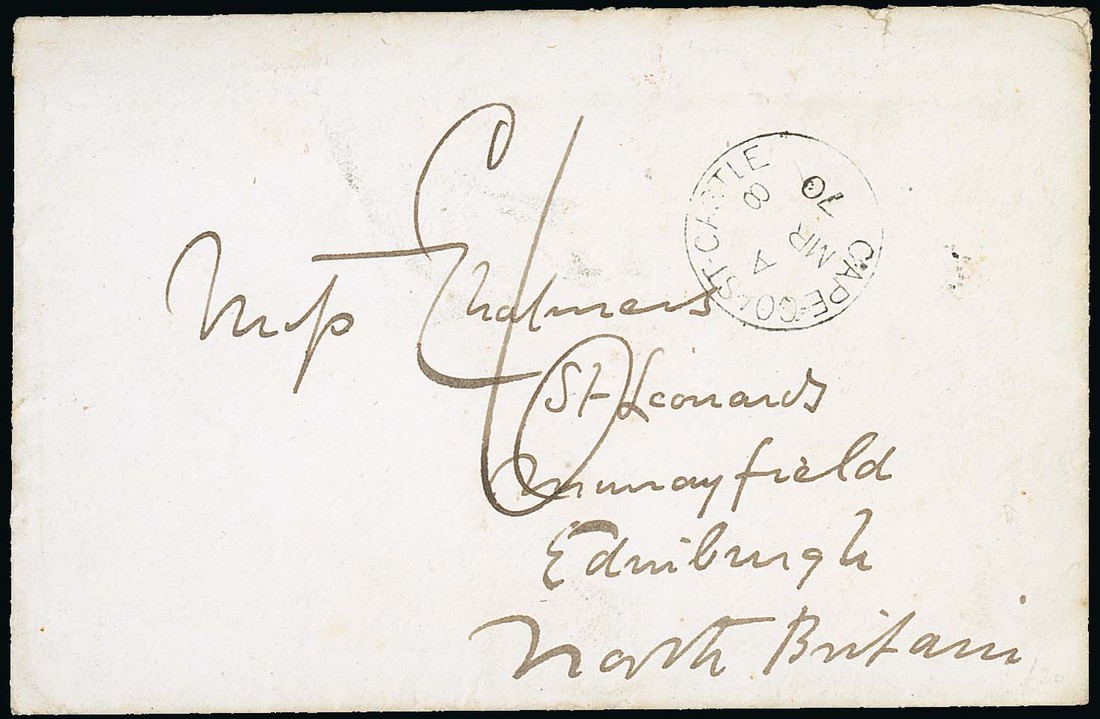 CAPE-COAST-CASTLE
A
MR 8
70
Miss Chalmers
St Leonards
Murrayfield
Edinburgh
North Britain